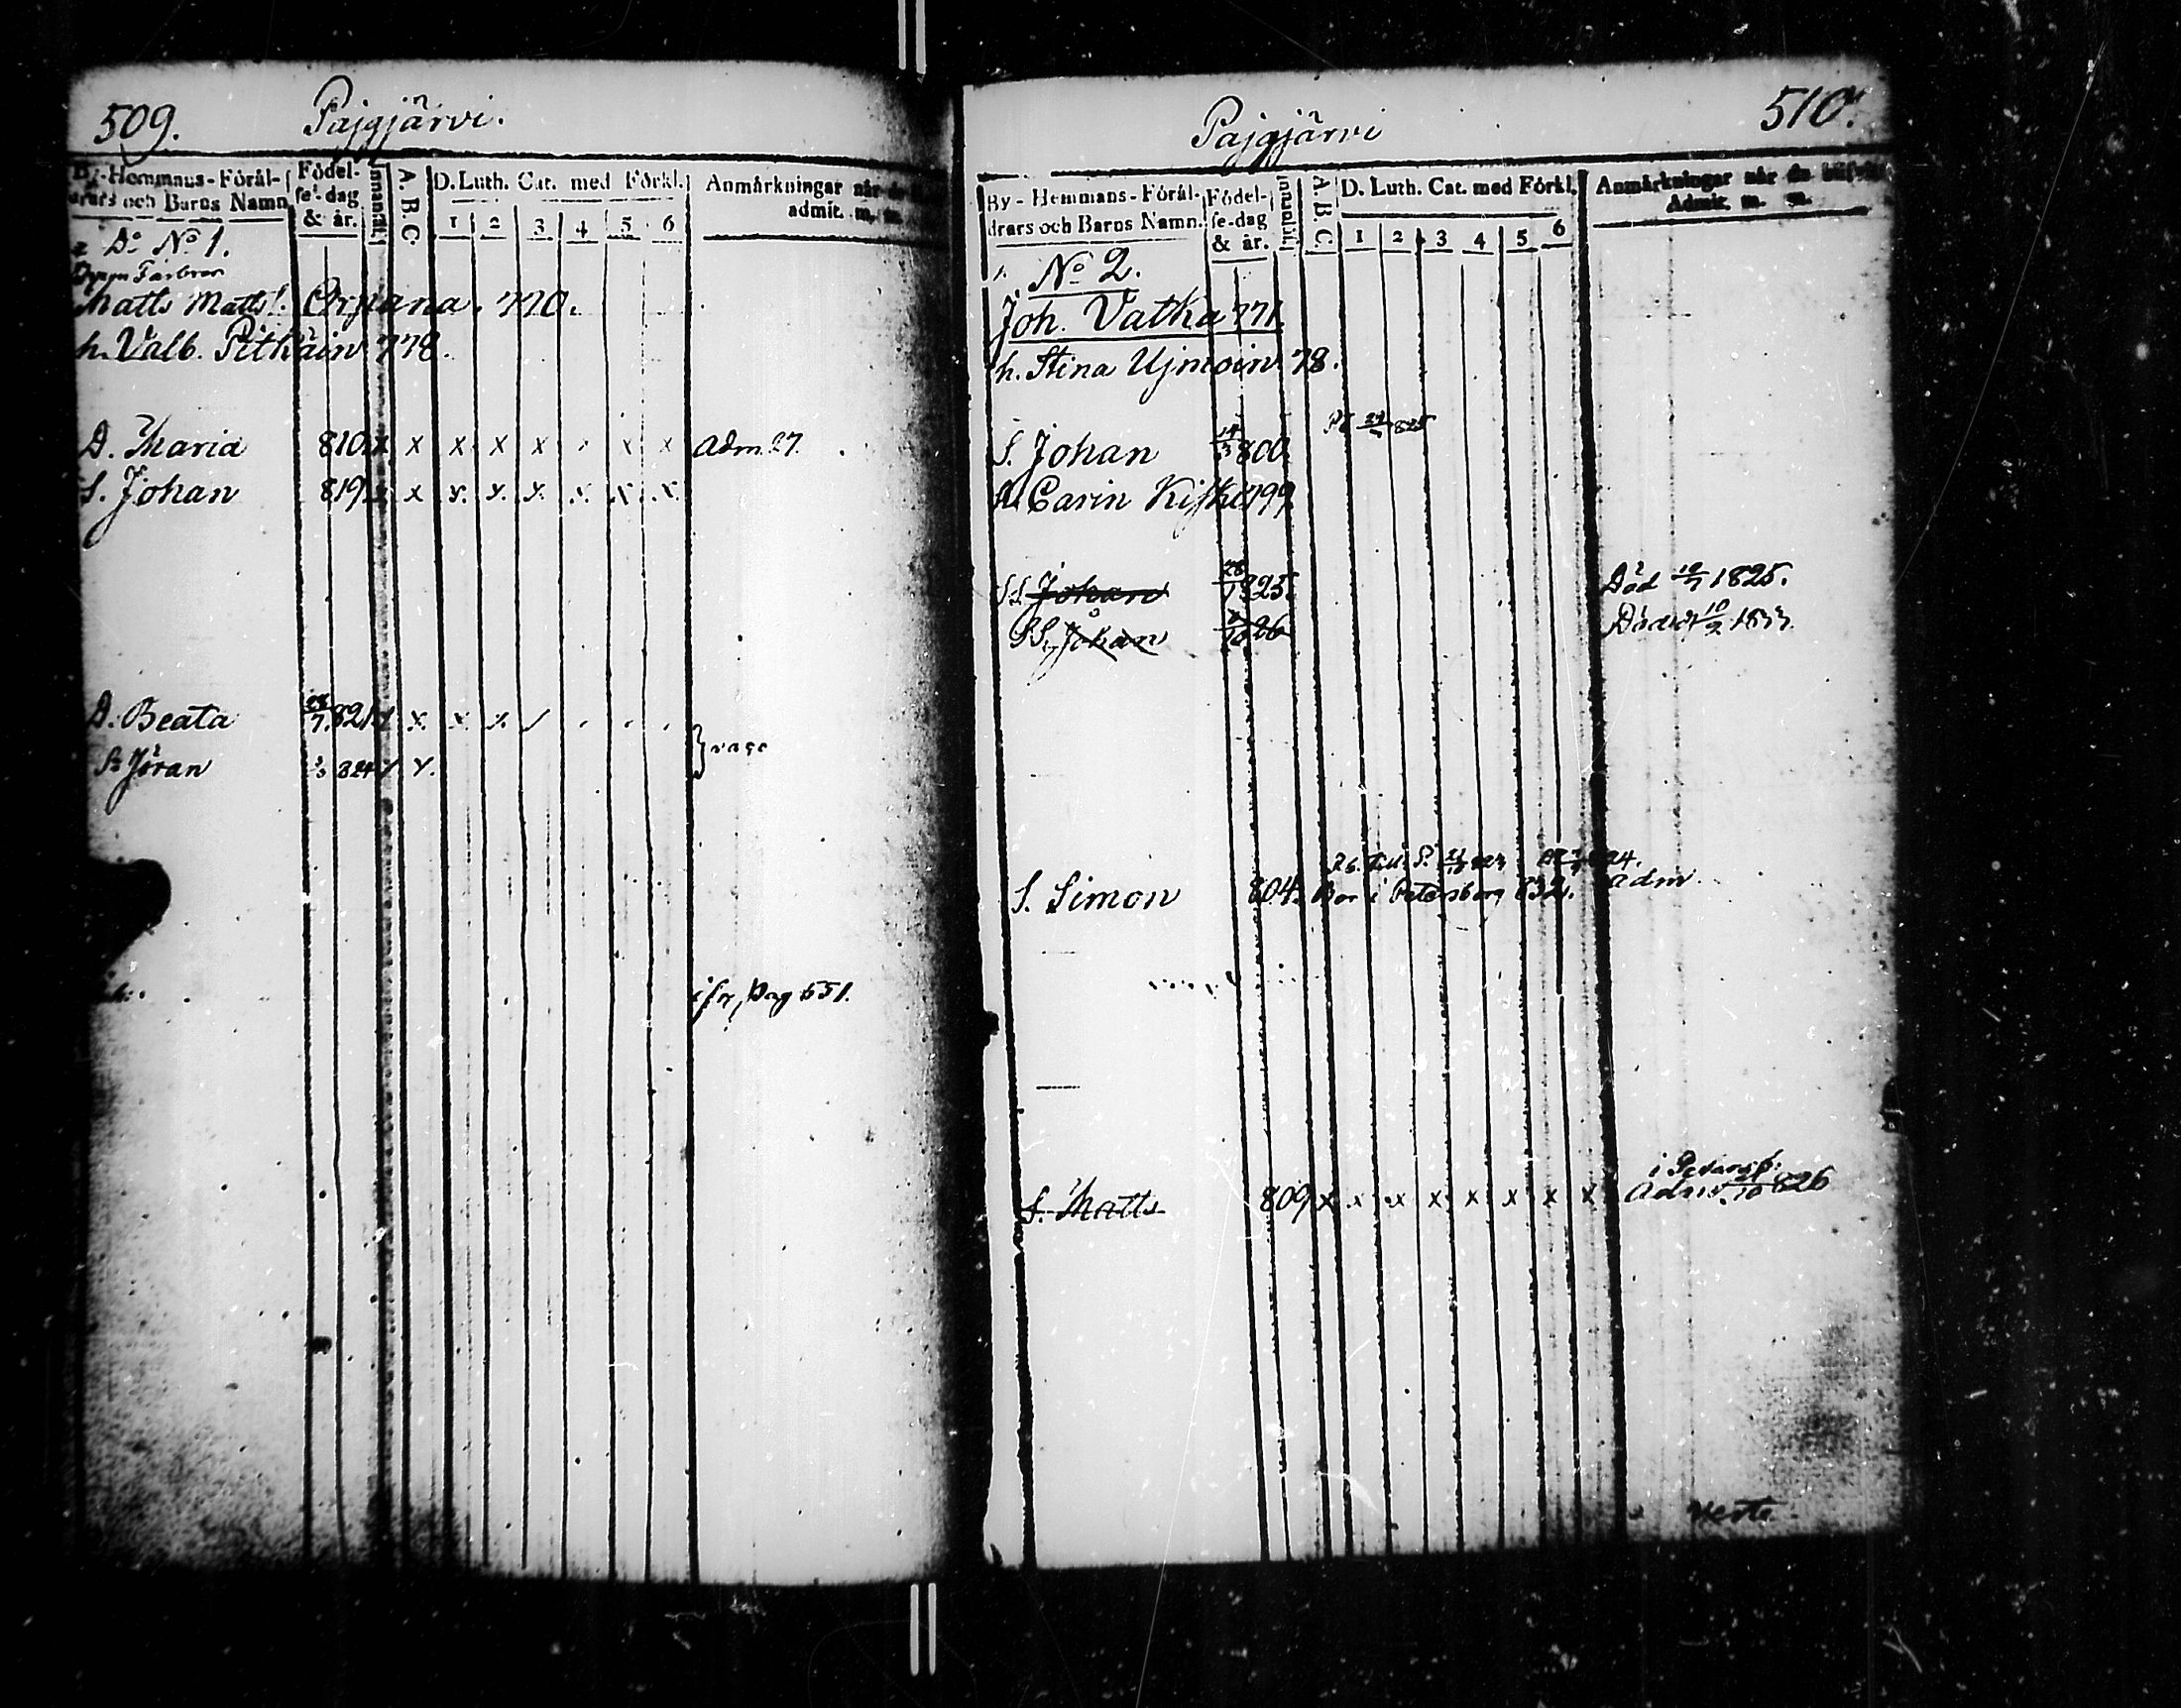 509. Pajgjärvi.
By-Hemmans-Föräl-
drars och Barns Namn
Födel-
se-dag
& år.
Innanläs.
A. B. C.
D. Luth. Cat. med Förkl.
1 2 3 4 5 6
Anmärkningar når de
admit. m. m.
Do No 1.
Matts Matts: Orpana. 770.
h. Valb. Pitkäin 778.
D. Maria 810. x x x x x x x Adm. 27.
S. Johan 819. x x x. x. x. x. x. x.
D. Beata 28/7. 821 x x. x. x
S. Jöran 824 x x.
Pag 551.
Pajgjärvi 510.
By-Hemmans-Föräl-
drars och Barns Namn.
Födel-
se-dag
& år.
Innanläs.
A. B. C.
D. Luth. Cat. med Förkl.
1 2 3 4 5 6
Anmärkningar når de
Admit. m. m.
1. No 2.
Joh. Vatka 771.
h. Stina Ujmoin 78.
S. Johan 800.
h. Carin Kiske 799
SS. Johan 28/1 825. Död 12/7 1825.
SS. Johan 26 Död 10/2 1833.
S. Simon 804. Bor i Petersborg 832. adm.
i Petersb.
S. Matts 809 x x x x x x x x Adm. 826
Verte